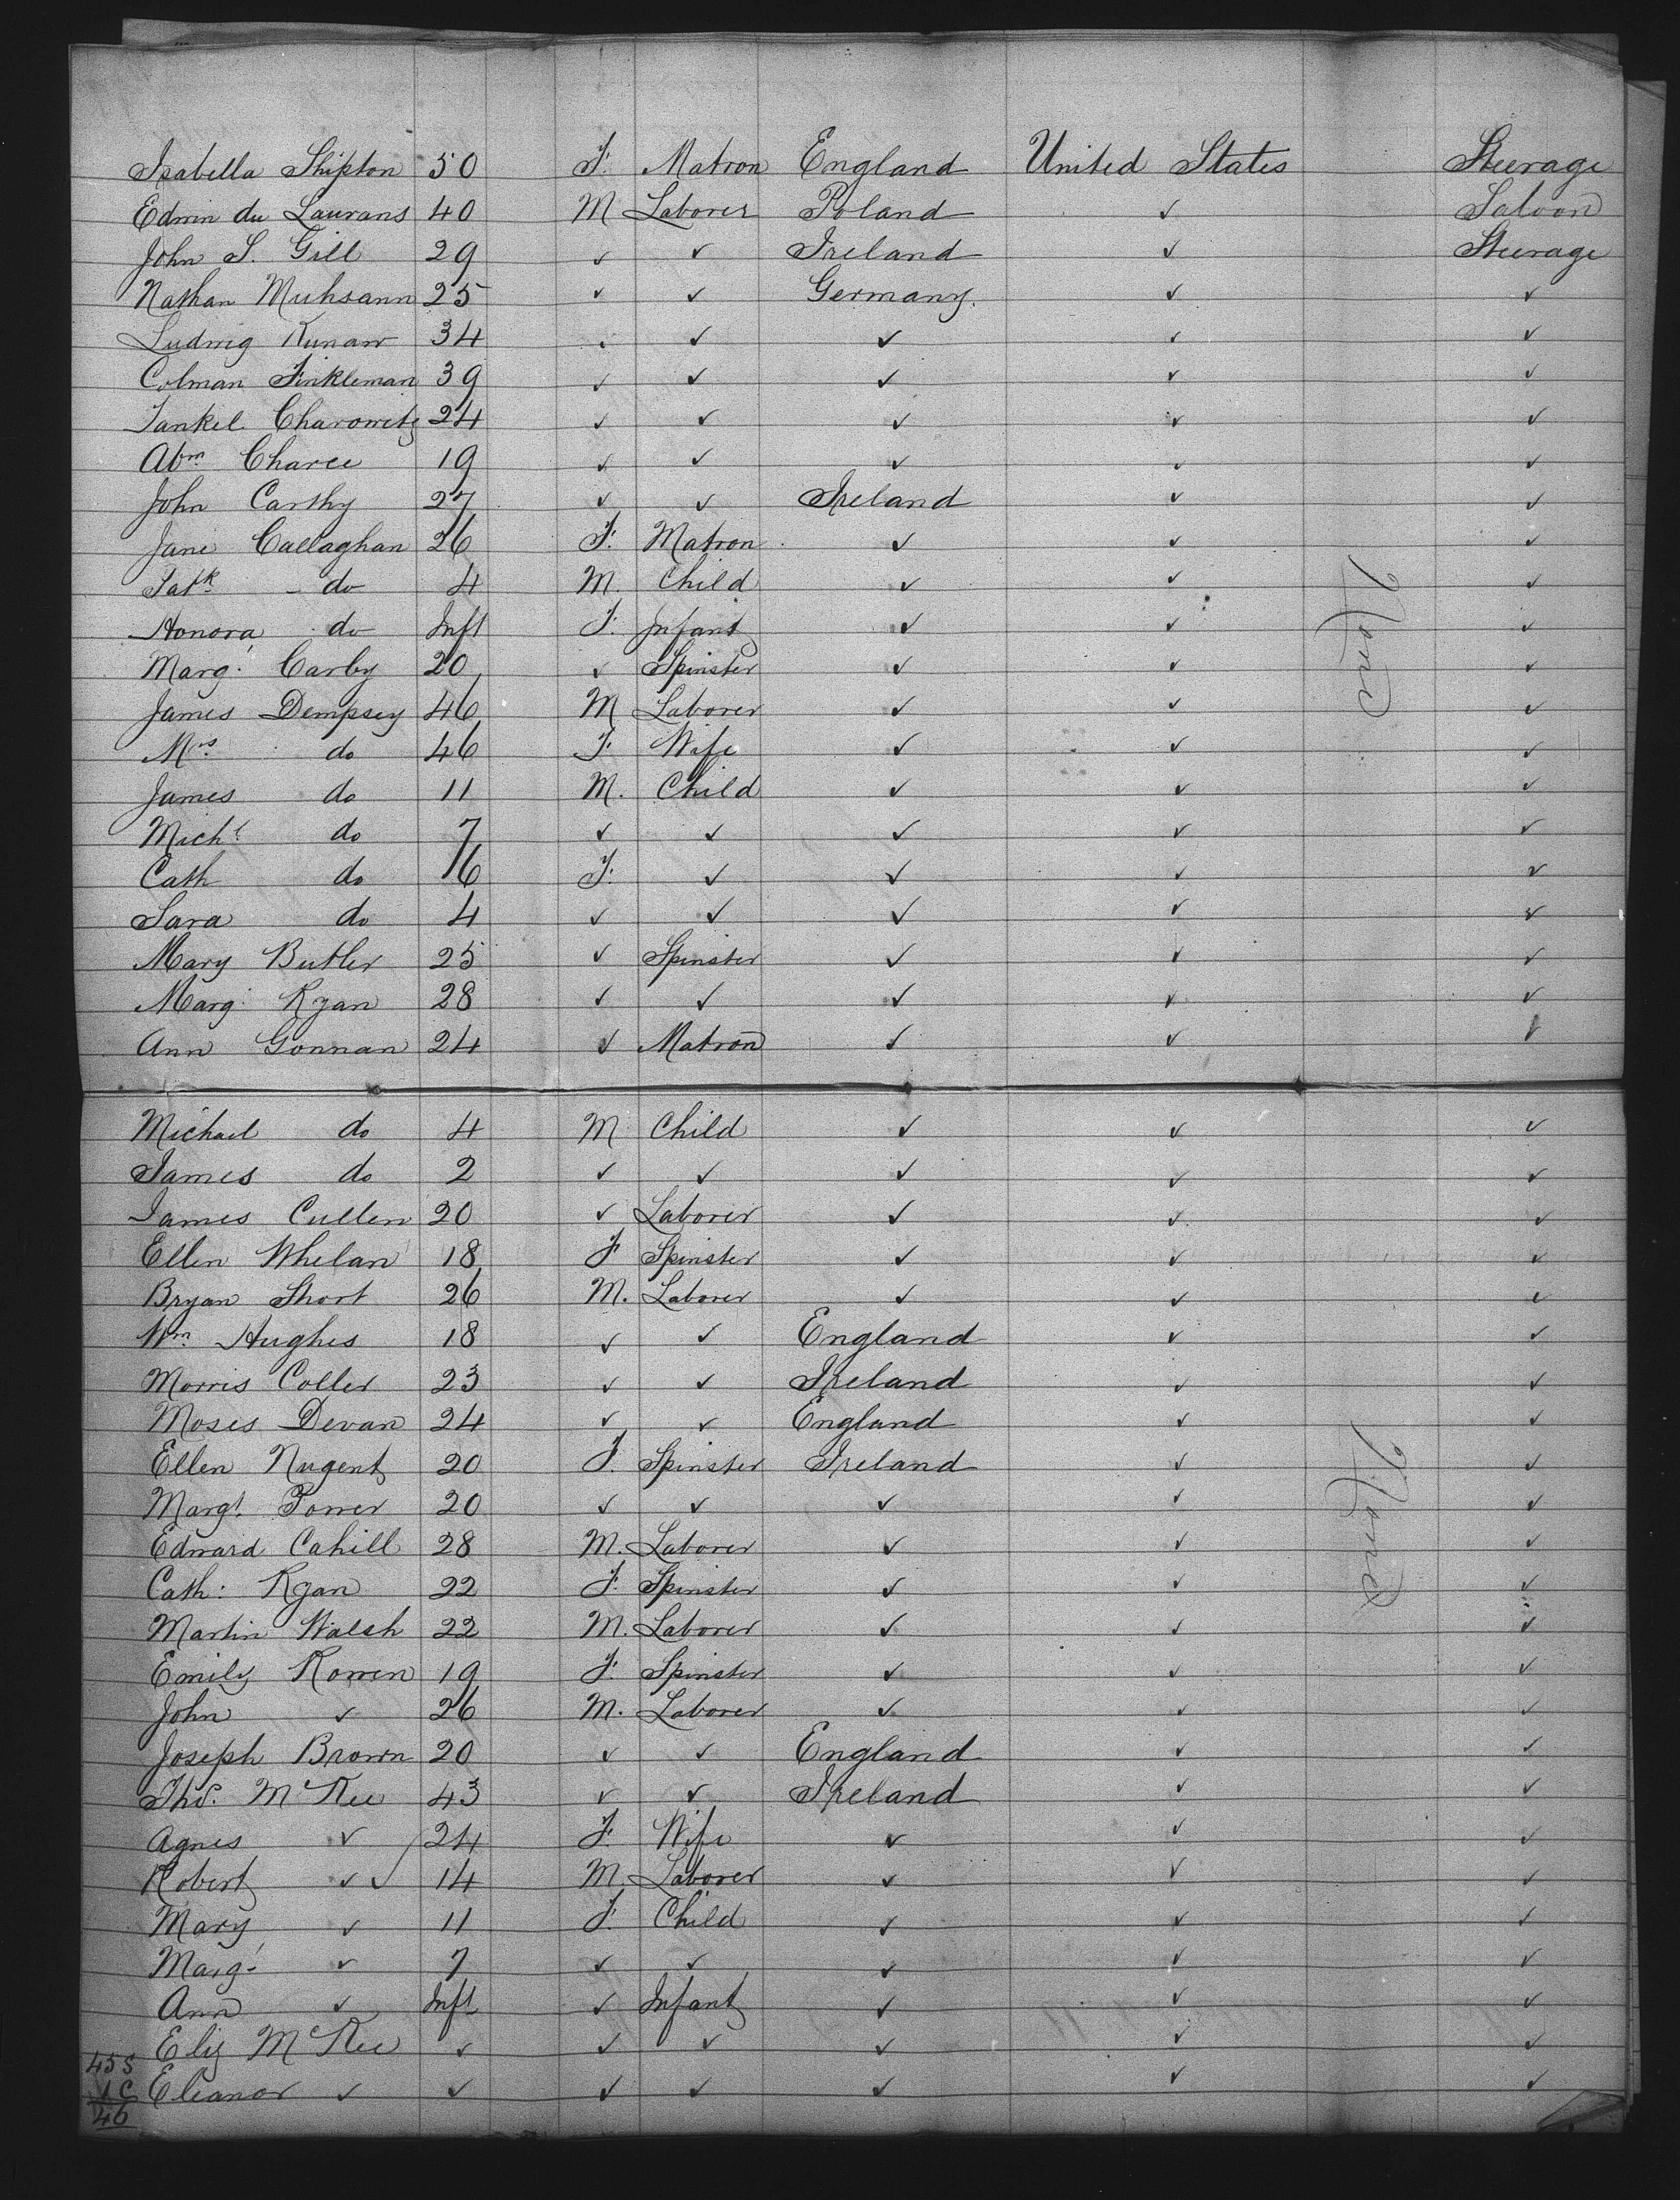 Isabella Shipton 50 F. Matron England United States Steerage
Edwin du Laurans 40 M Laborer Poland ✓ Saloon
John S. Gill 29 ✓ ✓ Ireland ✓ Steerage
Nathan Muhsann 25 ✓ ✓ Germany. ✓ ✓
Ludwig Kunaw 34 ✓ ✓ ✓ ✓ ✓
Colman Finkleman 39 ✓ ✓ ✓ ✓ ✓
Jankel Charowitz 24 ✓ ✓ ✓ ✓ ✓
Abm Charee 19 ✓ ✓ ✓ ✓ ✓
John Carthy 27 ✓ ✓ Ireland ✓ ✓
Jane Callaghan 26 F. Matron ✓ ✓ ✓
Patk do 4 M. Child ✓ ✓ ✓
Honora do Inft F. Infant ✓ ✓ ✓
Margt Carby 20 ✓ Spinster ✓ ✓ ✓
James Dempsey 46 M Laborer ✓ ✓ ✓
Mrs do 46 F Wife ✓ ✓ ✓
James do 11 M. Child ✓ ✓ ✓
Michl do 7 ✓ ✓ ✓ ✓ ✓
Cath do 6 F. ✓ ✓ ✓ ✓
Sara do 4 ✓ ✓ ✓ ✓ ✓
Mary Butler 25 ✓ Spinster ✓ ✓ ✓
Marg Ryan 28 ✓ ✓ ✓ ✓ ✓
Ann Gonnan 24 ✓ Matron ✓ ✓ ✓
None
Michael do 4 M Child ✓ ✓ ✓
James do 2 ✓ ✓ ✓ ✓ ✓
James Cullen 20 ✓ Laborer ✓ ✓ ✓
Ellen Whelan 18 F Spinster ✓ ✓ ✓
Bryan Short 26 M. Laborer ✓ ✓ ✓
Wm Hughes 18 ✓ ✓ England ✓ ✓
Morris Coller 23 ✓ ✓ Ireland ✓ ✓
Moses Devan 24 ✓ ✓ England ✓ ✓
Ellen Nugent 20 F. Spinster Ireland ✓ ✓
Margt Power 20 ✓ ✓ ✓ ✓ ✓
Edward Cahill 28 M. Laborer ✓ ✓ ✓
Cath: Ryan 22 F. Spinster ✓ ✓ ✓
Martin Walsh 22 M. Laborer ✓ ✓ ✓
Emily Rowen 19 F. Spinster ✓ ✓ ✓
John ✓ 26 M. Laborer ✓ ✓ ✓
Joseph Brown 20 ✓ ✓ England ✓ ✓
Thos. McKee 43 ✓ ✓ Ireland ✓ ✓
Agnes ✓ 24 F Wife ✓ ✓ ✓
Robert ✓ ✓ 14 M. Laborer ✓ ✓ ✓
Mary ✓ 11 F. Child ✓ ✓ ✓
Margt ✓ 7 ✓ ✓ ✓ ✓ ✓
Ann ✓ Inft ✓ Infant ✓ ✓ ✓
Eliz McKee ✓ ✓ ✓ ✓ ✓ ✓
Eleanor ✓ ✓ ✓ ✓ ✓ ✓ ✓
None
45 S
1 C
46